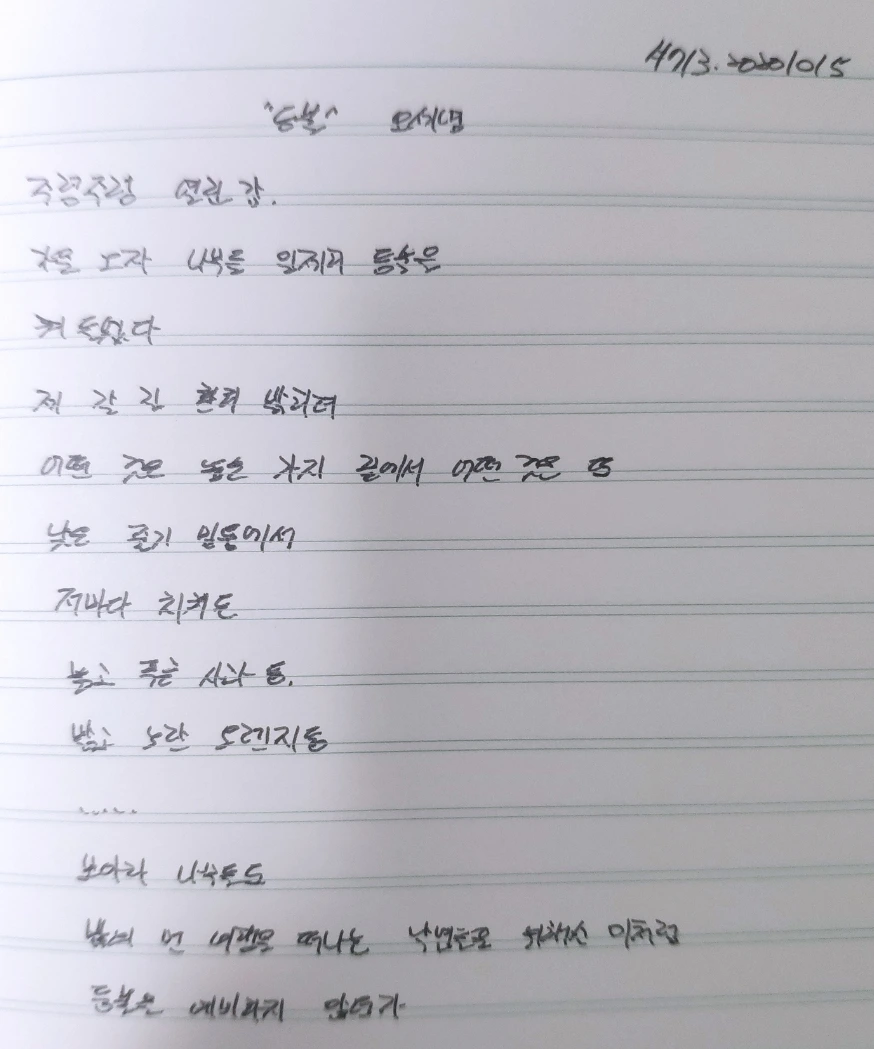 4713. 20201015
"등불" 오세영
주렁주렁 열린 감.
가을 오자 나무들 일제히 등불을
켜 들었다
제 갈 길 환히 밝히려
어떤 것은 높은 가지 끝에서 어떤 것은 또
낮은 줄기 밑둥에서
저마다 치켜든
붉고 푸른 사과 등.
밝고 노란 오렌지 등
......
보아라 나무들도
밤의 먼 여행을 떠나는 낙엽들을 위해선 이처럼
등불을 예비하지 않던가